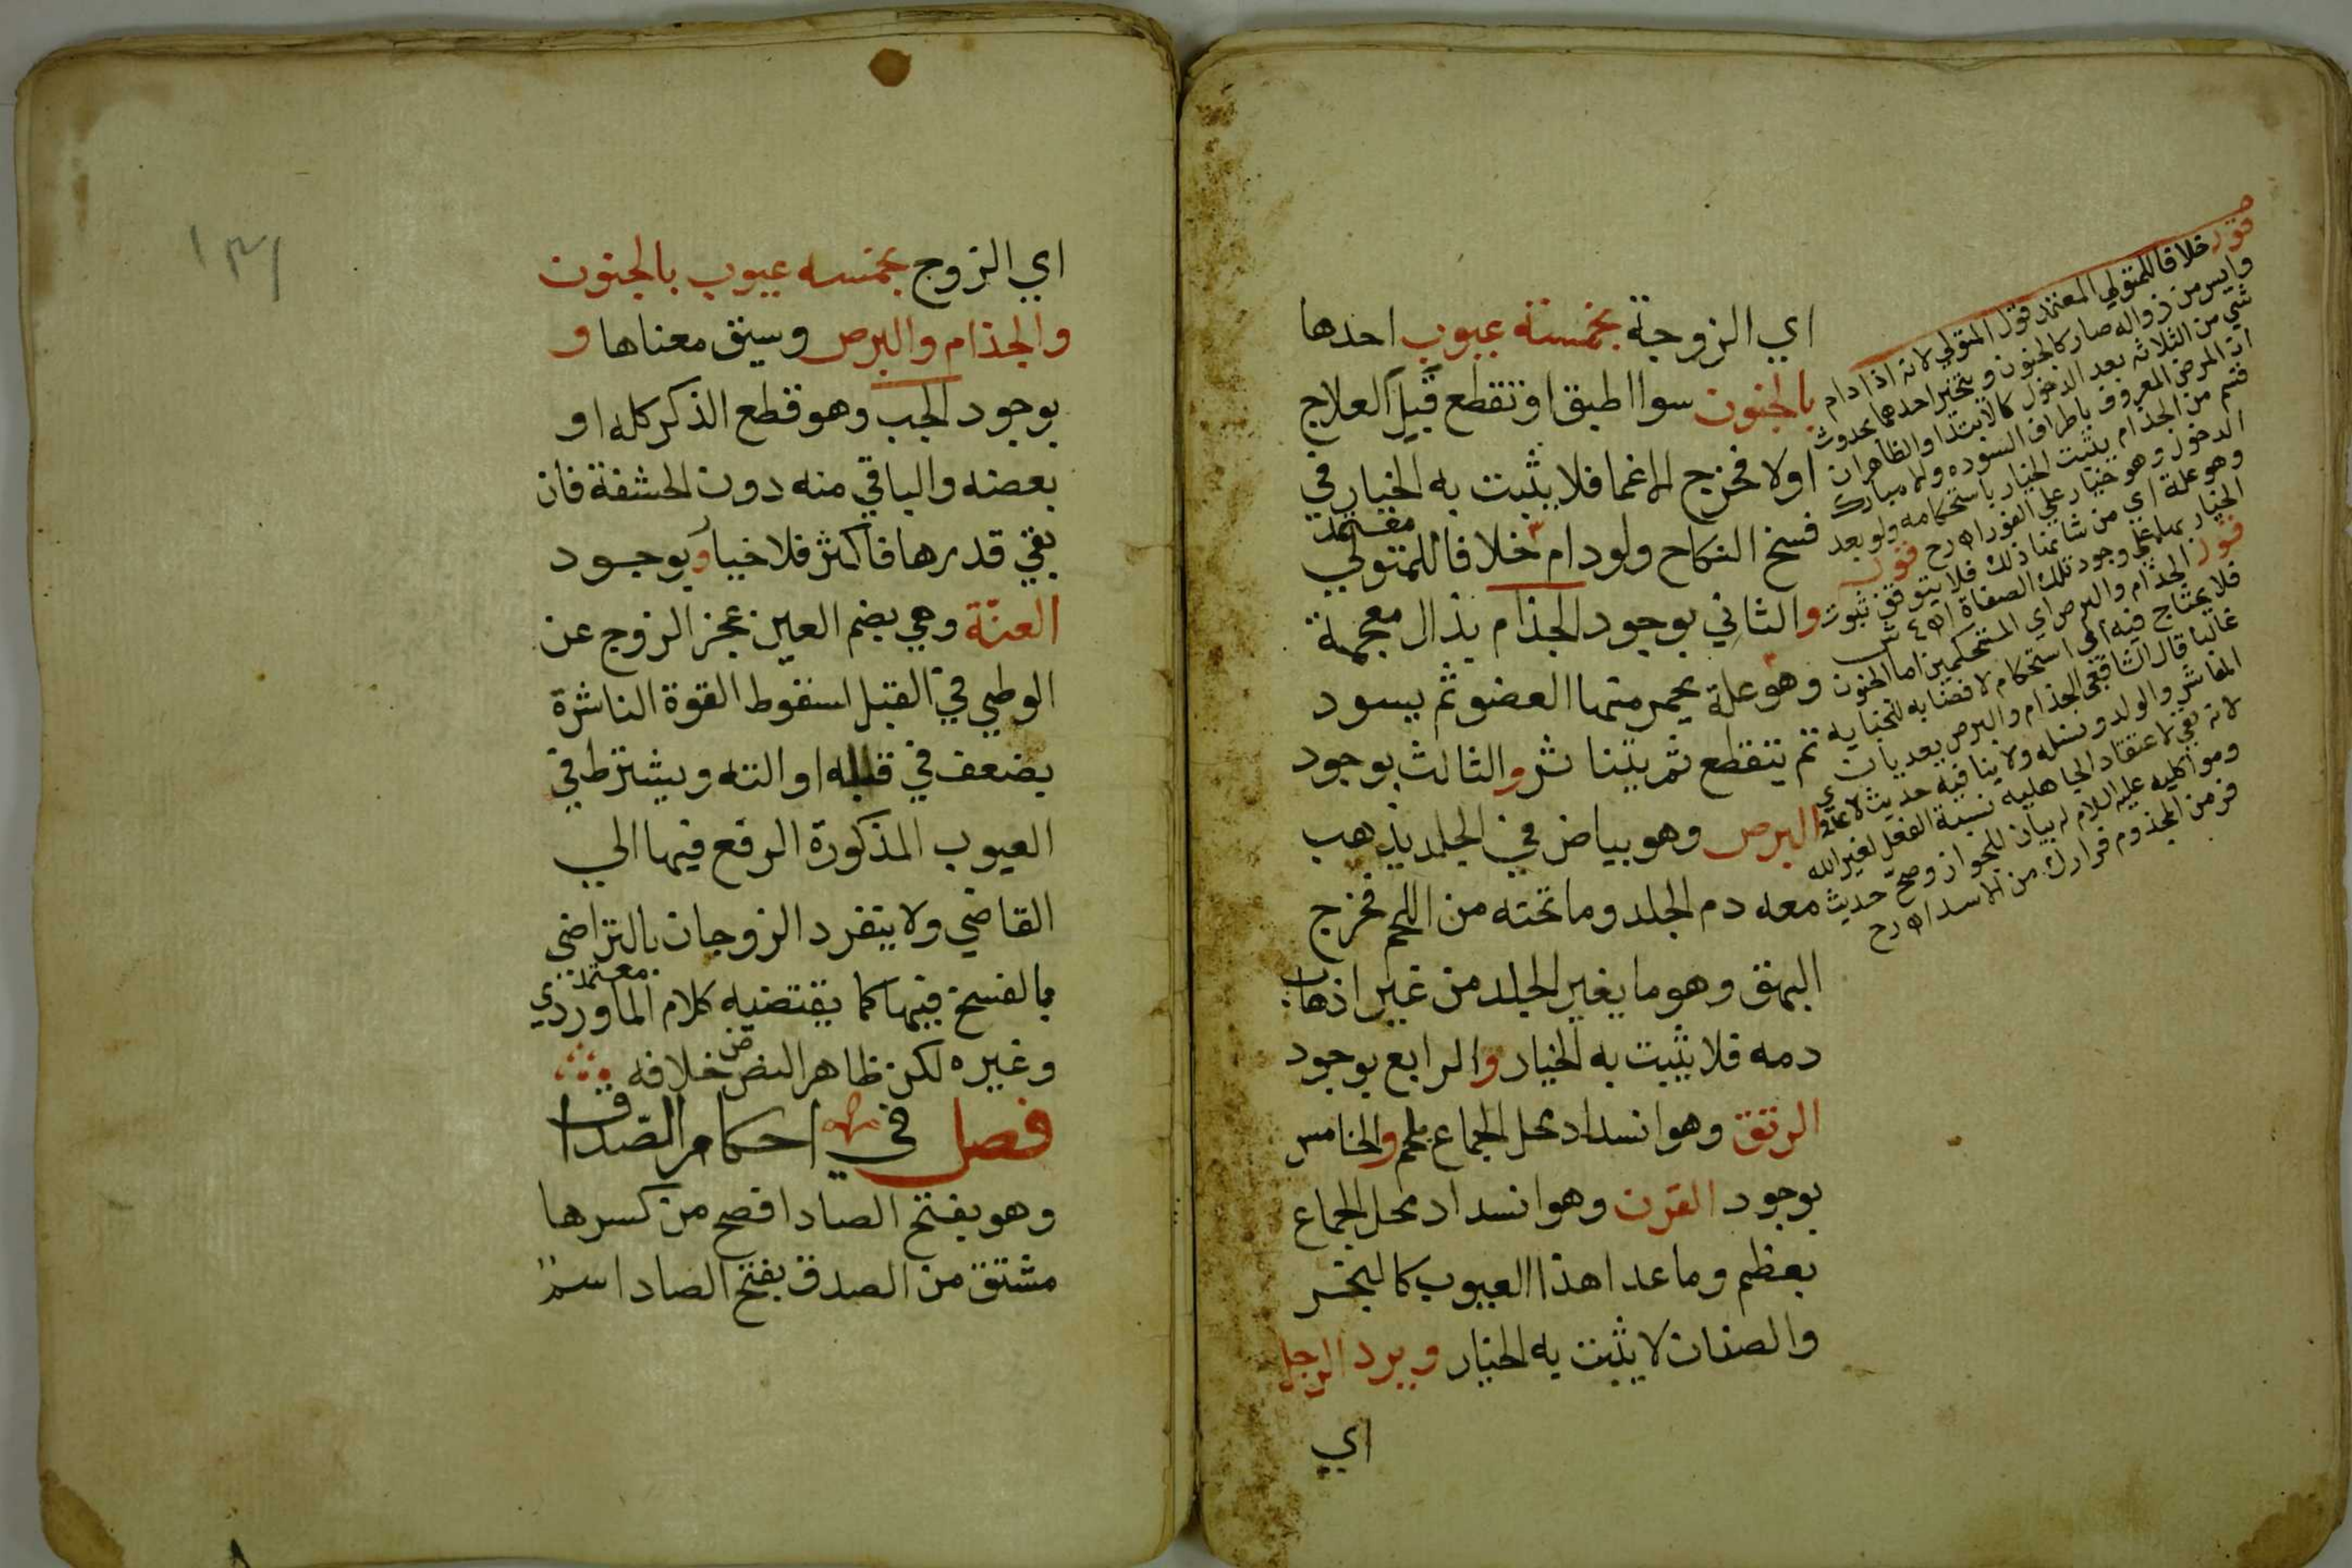 اي الزوجة بخمسة عيوب احدها
بالجنون سوا اطبق او تقطع قبل العلاج
اولا فخرج الاغما فلا يثبت به الخيار في
معتمد
فسخ النكاح ولودام خلافا للمتولي
والثاني بوجود الجذام بذال معجمة
وهو علة يحمر منها العضو ثم يسود
ثم يتقطع ثم يتناثر والثالث بوجود
البرص وهو بياض في الجلد يذهب
معه دم الجلد وما تحته من اللحم فخرج
البهق وهو ما يغير الجلد من غير اذهاب
دمه فلا يثبت به الخيار والرابع بوجود
الرتق وهو انسداد محل الجماع بلحم والخامس
بوجود القرن وهو انسداد محل الجماع
بعظم وما عدا هذا العيوب كالبخر
والصنان لا يثبت به الخيار ويرد الرجل
اي
قوله خلافا للمتولي المعتمد قول المتولي لانه اذا دام
وايس من زواله صار كالجنون ويتخير احدهما بحدوث
شي من الثلاثه بعد الدخول كالابتدا والظاهر ان
ان المرض المعروف باطراف السوده والمبارك
قسم من الجذام يثبت الخيار باستحكامه ولو بعد
الدخول وهو خيار على الفور اه رح قوله
وهو علة اي من شانها ذلك فلا يتوقف ثبوت
الخيار بها على وجود تلك الصفاة اه ع ش
قوله الجذام والبرص اي المستحكمين اما الجنون
فلا يحتاج فيه الى استحكام لافضايه للجنايه
غالبا قال الشافعي الجذام والبرص يعديان
المعاشر والولد ونسله ولا ينافيه حديث لا عدوى
لانه نفي لاعتقاد الجاهليه نسبة الفعل لغير الله
ومواكلته عليه السلام له بيان للجواز وصح حديث
فر من المجذوم فرارك من الاسد اه رح
١٣١
اي الزوج بخمسه عيوب بالجنون
والجذام والبرص وسبق معناها و
بوجود الجب وهو قطع الذكر كله او
بعضه والباقي منه دون الحشفة فان
بقي قدرها فاكثر فلا خيار وبوجود
العنة وهي بضم العين عجز الزوج عن
الوطي في القبل لسقوط القوة الناشرة
بضعف في قلبه او الته ويشترط في
العيوب المذكورة الرفع فيها الي
القاضي ولا ينفرد الزوجان بالتراضي
معتمد
بالفسخ فيها كما يقتضيه كلام الماوردي
وغيره لكن ظاهر النص خلافه
فصل في احكام الصداق
وهو بفتح الصاد افصح من كسرها
مشتق من الصدق بفتح الصاد اسم